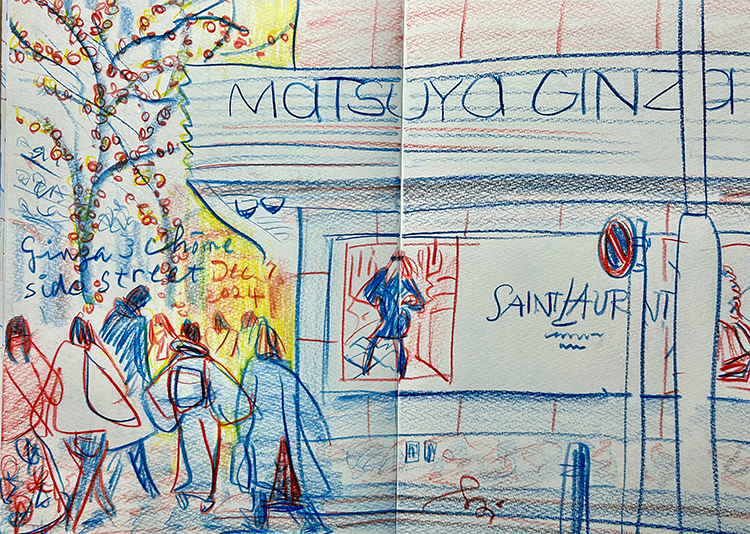 MATSUYA GINZA
Ginza 3 Chome
side street Dec 7
2024
SAINT LAURENT